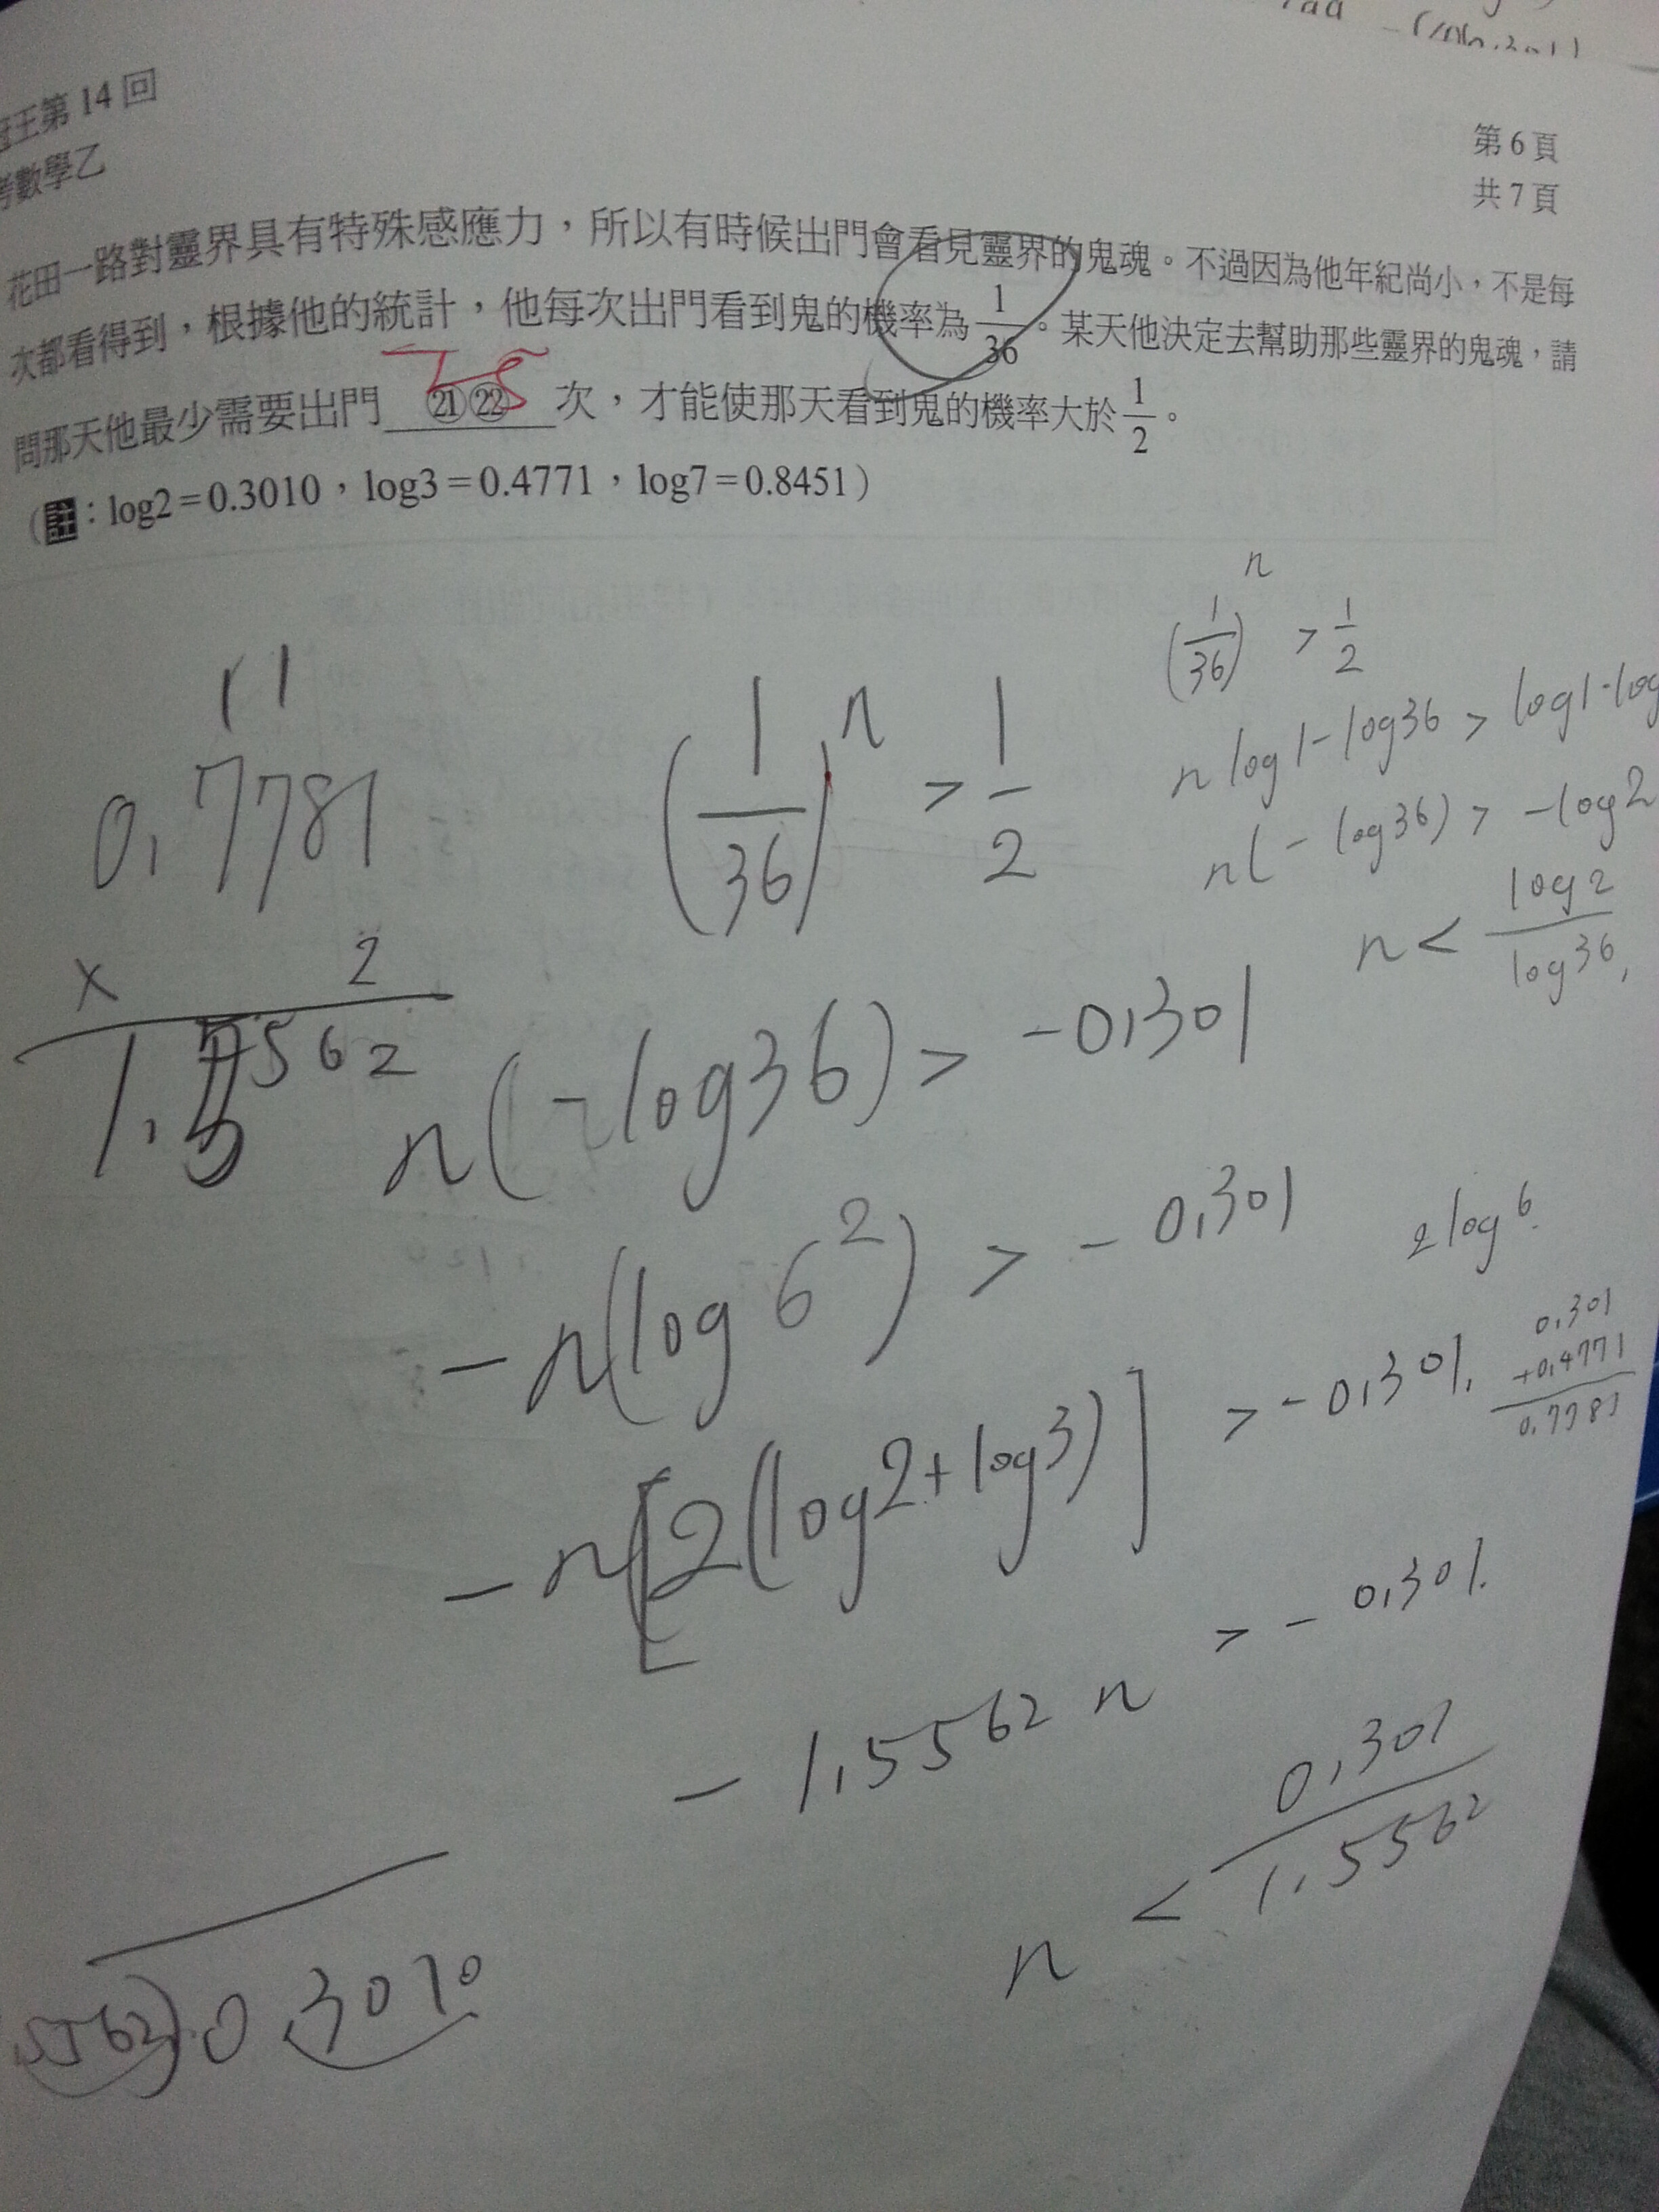 王第 14 回
數學乙
第 6 頁
共 7 頁
花田一路對靈界具有特殊感應力，所以有時候出門會看見靈界的鬼魂。不過因為他年紀尚小，不是每
次都看得到，根據他的統計，他每次出門看到鬼的機率為 1/36。某天他決定去幫助那些靈界的鬼魂，請
問那天他最少需要出門 ㉑㉒ 次，才能使那天看到鬼的機率大於 1/2。
（註：log2＝0.3010，log3＝0.4771，log7＝0.8451）
(1/36)^n > 1/2
n log1-log36 > log1-log
n(-log36) > -log2
n < log2/log36
11
0.7781
x 2
1.5562
(1/36)^n > 1/2
n(-log36) > -0.301
-n(log6²) > -0.301
2log6
-n[2(log2+log3)] > -0.301
0.301
+0.4771
0.7781
-1.5562n > -0.301
n < 0.301/1.5562
5562)0.3010